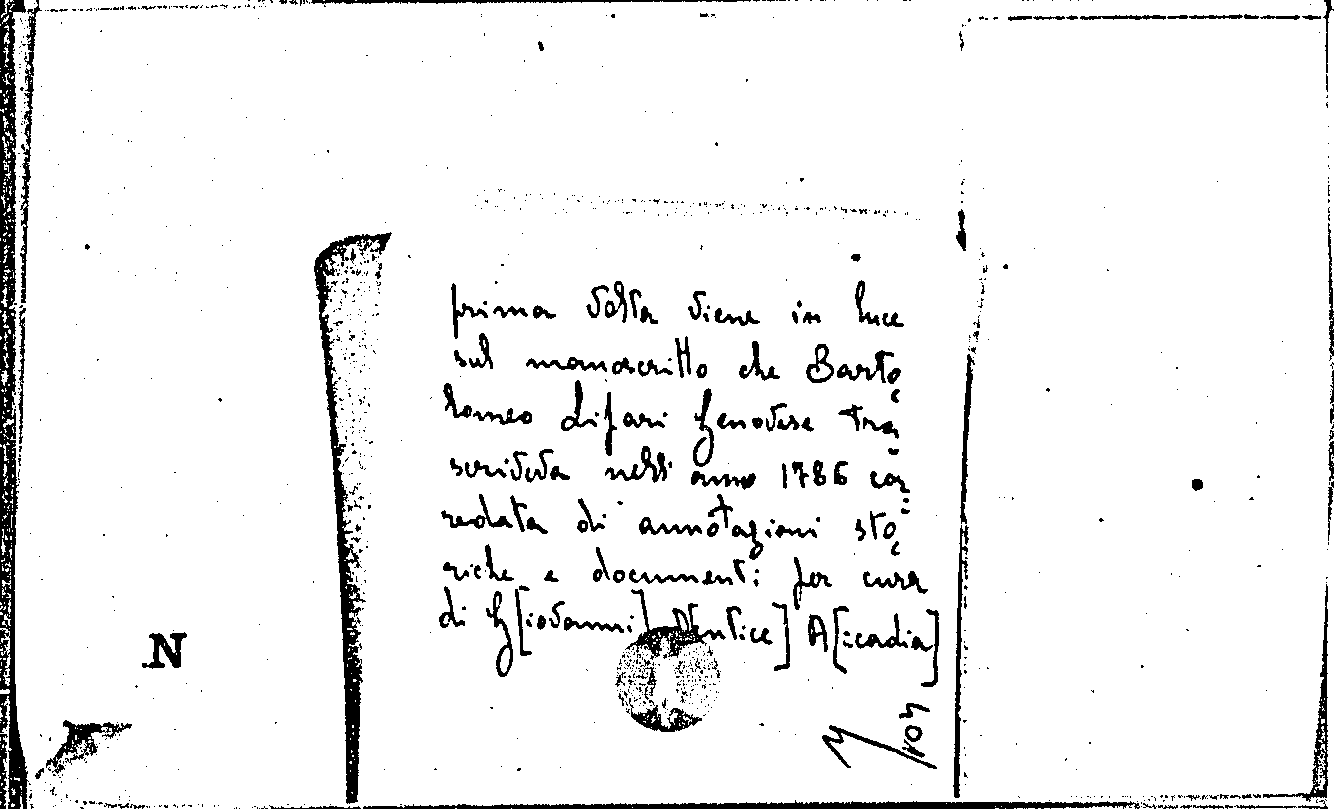 prima volta viene in luce
sul manoscritto che Barto
lomeo Lipari Genovese tra
scriveva nell'anno 1786 cor
redata di annotazioni sto
riche e documenti per cura
di G[iovanni] D[entice] A[iccadia]
N